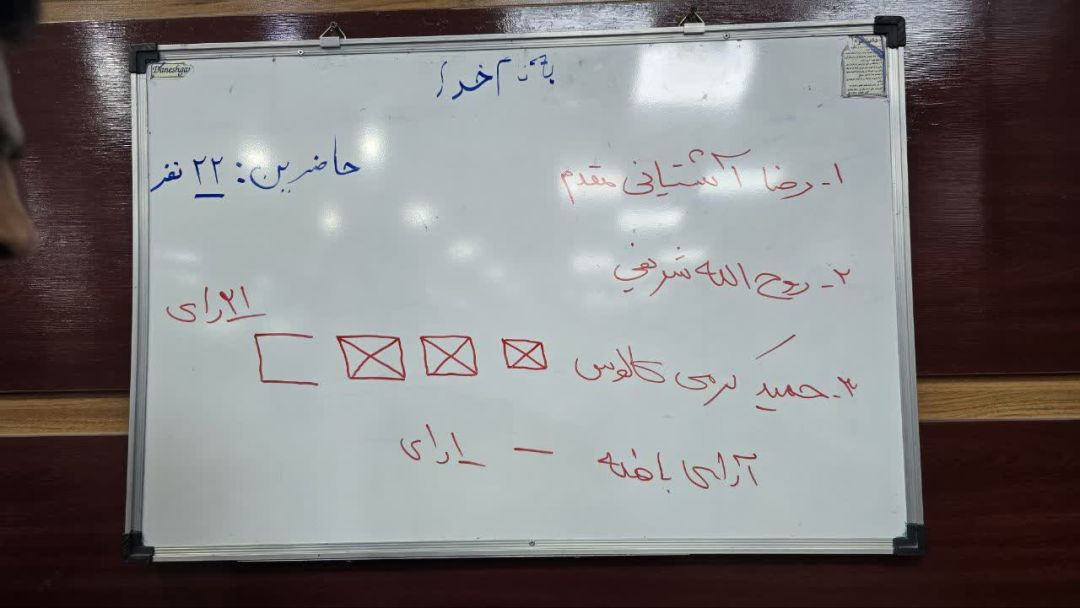 بنام خدا
حاضرین: ۲۲ نفر
۱- رضا آشتیانی مقدم
۲- روح الله شریفی
۲۱ رای
۳- حمید کرمی کالوس
آرای باطله — ۱ رای
Daneshgar